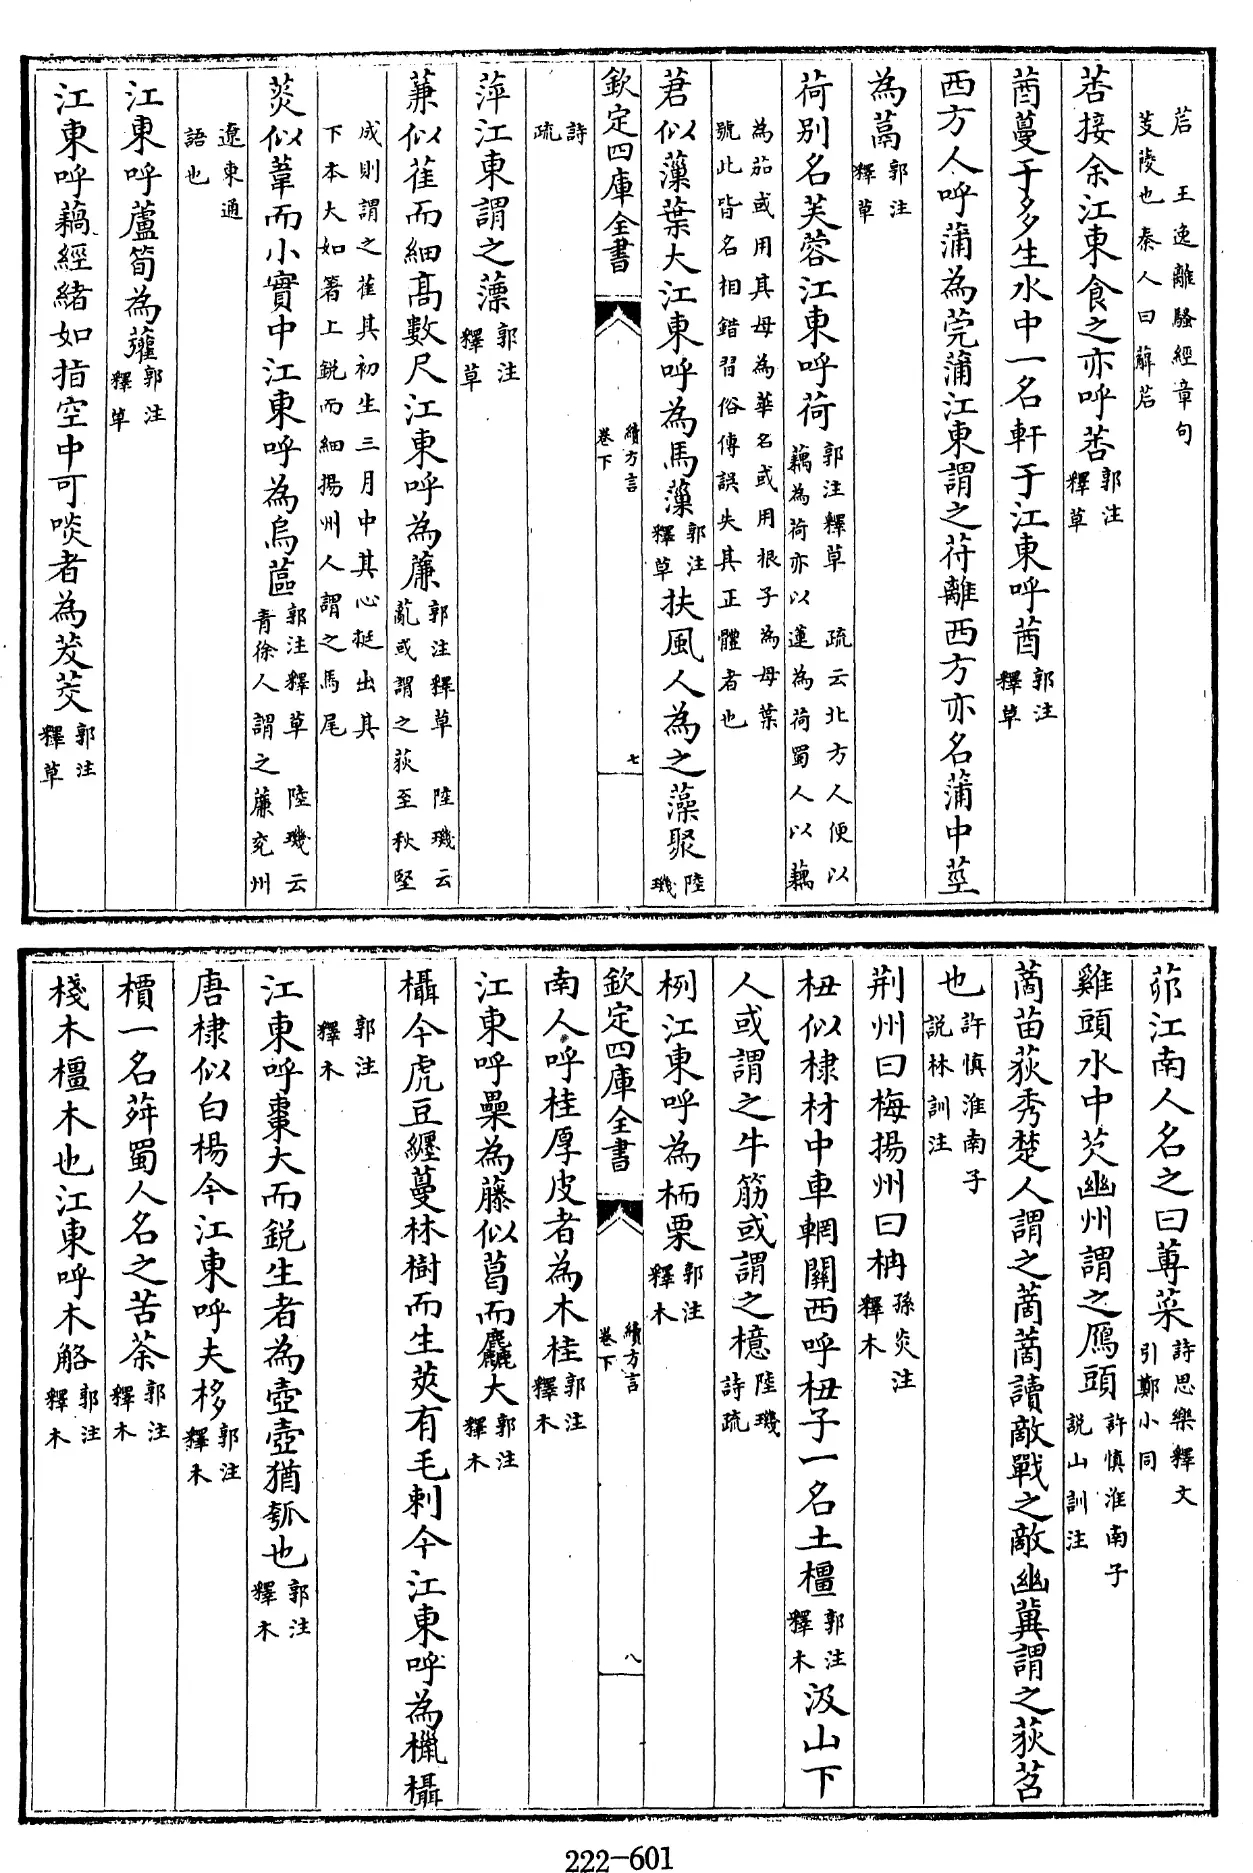 茩　王逸離騷經章句
芰蔆也秦人曰薢茩
莕接余江東食之亦呼莕郭注釋草
莤蔓于多生水中一名軒于江東呼莤郭注釋草
西方人呼蒲為莞蒲江東謂之苻離西方亦名蒲中莖
為蒚郭注釋草
荷別名芙蓉江東呼荷郭注釋草　疏云北方人便以藕為荷亦以蓮為荷蜀人以藕
為茄或用其母為華名或用根子為母葉號此皆名相錯習俗傳誤失其正體者也
莙似薻葉大江東呼為馬薻郭注釋草扶風人為之藻聚陸璣
欽定四庫全書
續方言卷下
七
詩疏
萍江東謂之薸郭注釋草
蒹似萑而細高數尺江東呼為薕郭注釋草　陸璣云薍或謂之荻至秋堅
成則謂之萑其初生三月中其心挺出其下本大如箸上銳而細揚州人謂之馬尾
菼似葦而小實中江東呼為烏蓲郭注釋草　陸璣云青徐人謂之薕兖州
遼東通語也
江東呼蘆筍為虇郭注釋草
江東呼藕經緒如指空中可啖者為茇茭郭注釋草
茆江南人名之曰蓴菜詩思樂釋文引鄭小同
雞頭水中芡幽州謂之鴈頭許慎淮南子說山訓注
蔐苗荻秀楚人謂之蔐蔐讀敵戰之敵幽冀謂之荻苕
也許慎淮南子說林訓注
荆州曰梅揚州曰柟孫炎注釋木
杻似棣材中車輞關西呼杻子一名土橿郭注釋木汲山下
人或謂之牛筋或謂之檍陸璣詩疏
栵江東呼為栭栗郭注釋木
欽定四庫全書
續方言卷下
八
南人呼桂厚皮者為木桂郭注釋木
江東呼櫐為藤似葛而麤大郭注釋木
欇今虎豆纒蔓林樹而生莢有毛刺今江東呼為㯿欇
郭注釋木
江東呼棗大而銳生者為壺壺猶瓠也郭注釋木
唐棣似白楊今江東呼夫栘郭注釋木
檟一名荈蜀人名之苦荼郭注釋木
棧木橿木也江東呼木觡郭注釋木
222-601